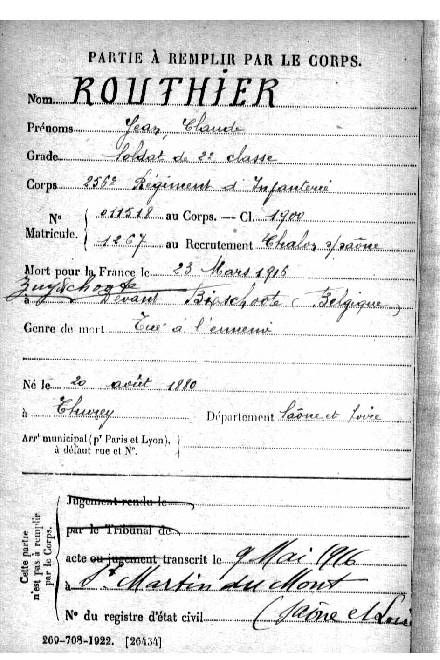 PARTIE À REMPLIR PAR LE CORPS.
Nom ROUTHIER
Prénoms Jean, Claude
Grade Soldat de 2e classe
Corps 256e Régiment d'Infanterie
N° Matricule. 011518 au Corps. — Cl. 1900
1267 au Recrutement Chalon s/saône
Mort pour la France le 23 Mars 1916
Zuyschoote
à Devant Bixschoote (Belgique)
Genre de mort Tué à l'ennemi
Né le 20 août 1880
à Thurey Département Saône et Loire
Arrt municipal (pr Paris et Lyon),
à défaut rue et N°.
Cette partie n'est pas à remplir par le Corps.
Jugement rendu le
par le Tribunal de
acte ou jugement transcrit le 9 Mai 1916
à St Martin du Mont
N° du registre d'état civil (Saône et Loire
269-708-1922. [26434]